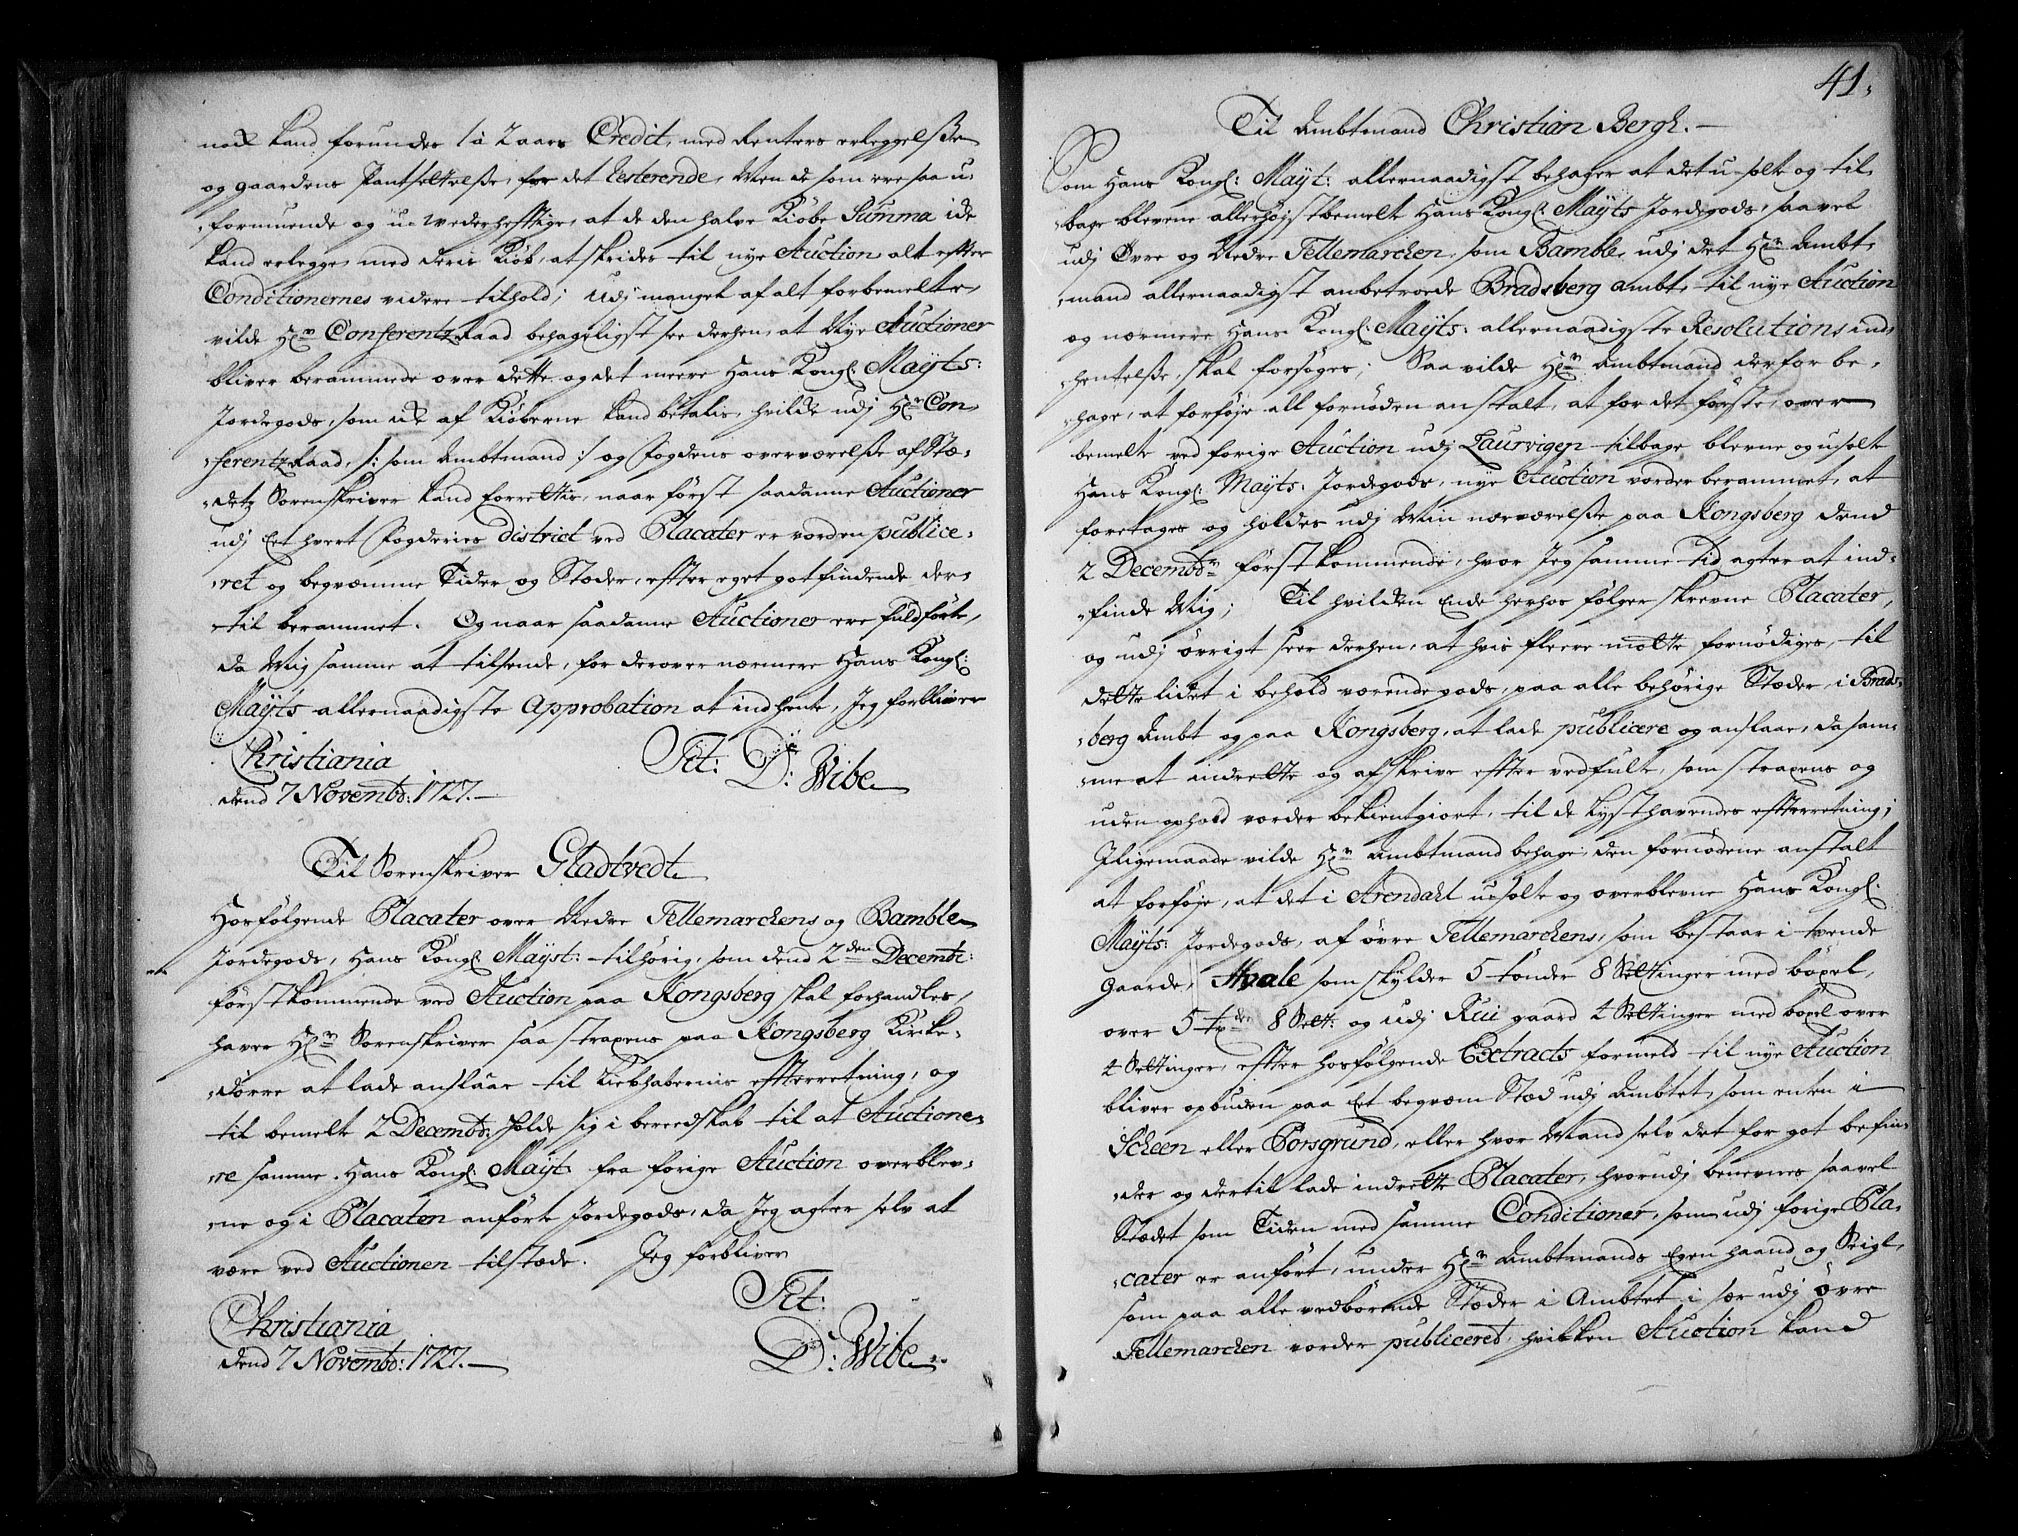 nock kand forundes 1 à 2 aars Credit, med Renters erleggelsse
og gaardens Pantsettelsse, for det Resterende, Men de som ere saa u-
-formuende og u-wederhefftige, at de den halve Kiöbe Summa icke
kand erlegge, med deris Kiöb, at skrides til nye Auction alt efter
Conditionernes videre tilhold; udj mangel af alt forbemelte,
vilde Hr: Conferentz Raad behageligst see derhen, at Nye Auctioner
bliver berammede over dette, og det meere Hans Kongl: Mayts:
Jordegods, som icke af Kiöberne kand betalis, hvilcke udj Hr: Con-
-ferentz Raad, /: som Ambtmand :/ og Fogdens overværelsse af Stæ-
-detz Sorenskriver kand forrettis, naar först saadanne Auctioner
udj Eet hvert Fogderies district ved Placater er vorden publice-
-ret og beqvæmme Tider og Stæder, effter eget gotfindende der-
-til berammet. Og naar saadanne Auctioner ere fuldförte,
da Mig samme at tilsende, for derover nærmere Hans Kongl:
Mayts allernaadigste Approbation at indhente, Jeg forbliver
Christiania Tit: D: Wibe
dend 7 Novembr: 1727.
Til Sorenskriver Gladtvedt
Hosfölgende Placater over Nedre Tellemarckens og Bamble
Jordegods, Hans Kongl: Mayst: tilhörig, som dend 2den Decembr:
förstkommende ved Auction paa Kongsberg skal forhandles,
haver Hr: Sorenskriver saa straxens paa Kongsberg Kirke-
-dörre at lade anslaae til Liebhabernis effterretning, og
til bemelt 2 Decembr: holde sig i bereedskab til at Auctione-
-re samme Hans Kongl: Mayt: fra forige Auction overblev-
-ne og i Placaten anförte Jordegods, da Jeg agter selv at
være ved Auctionen tilstæde. Jeg forbliver
Tit:
Christiania D: Wibe
dend 7 Novembr: 1727.
41.
Til Ambtmand Christian Bergh.
Som Hans Kongl: Mayt: allernaadigst behager at det u-solte og til-
-bage blevene allerhöjstbemelt Hans Kongl: Mayts Jordegods, saavel
udj Øvre og Nedre Tellemarcken, som Bamble, udj det Hr: Ambt-
-mand allernaadigst anbetroede Bradsberg Ambt, til nye Auction
og nærmere Hans Kongl: Mayts: allernaadigste Resolutions ind-
-hentelsse, skal forsöges; Saa vilde Hr: Ambtmand derfor be-
-hage, at forföje all fornöden anstalt, at for det förste, over-
bemelte ved forige Auction udj Laurvigen tilbage blevne og usolte
Hans Kongl: Mayts: Jordegods, nye Auction vorder berammet, at
foretages og holdes udj Min nærværelsse paa Kongsberg dend
2 Decembr: förstkommende, hvor Jeg samme tid agter at ind-
-finde Mig; Til hvilcken Ende herhos fölger skrevne Placater,
og udj övrigt seer derhen, at hvis fleere maatte fornödiges, til
dette lidet i behold værende gods, paa alle behörige Stæder i Brads-
-berg Ambt og paa Kongsberg, at lade publicere og anslaae, da sam-
-me at indrette og afskrive effter vedfulte, som straxens og
uden ophold vorder bekientgiort, til de Lysthavendes effterretning;
Iligemaade vilde Hr: Ambtmand behage, den fornödene anstalt
at forföje, at det i Arendahl usolte og overblevne Hans Kongl:
Mayts: Jordegods, af övre Tellemarckens, som bestaar i tvende
Gaarde, Hvale som skylder 5 tönder 8 Settinger med böxel,
over 5 tr 8 Sett: og udj Rui gaard 4 Settinger med böxel over
4 Settinger, effter hosfölgende Extracts formeld til nye Auction
bliver opbuden paa Eet beqvem Stæd udj Ambtet, som enten i
Scheen eller Porsgrund, eller hvor Mand selv det for got befin-
-der og dertil lade indrette Placater, hvorudj benevnes saavel
Stædet som Tiden med samme Conditioner, som udj forige Pla-
-cater er anfört, under Hr: Ambtmands Egen haand og Seigl,
som paa alle vedbörende Stæder i Ambtet i sær udj övre
Tellemarcken vorder publiceret, hvilken Auction kand